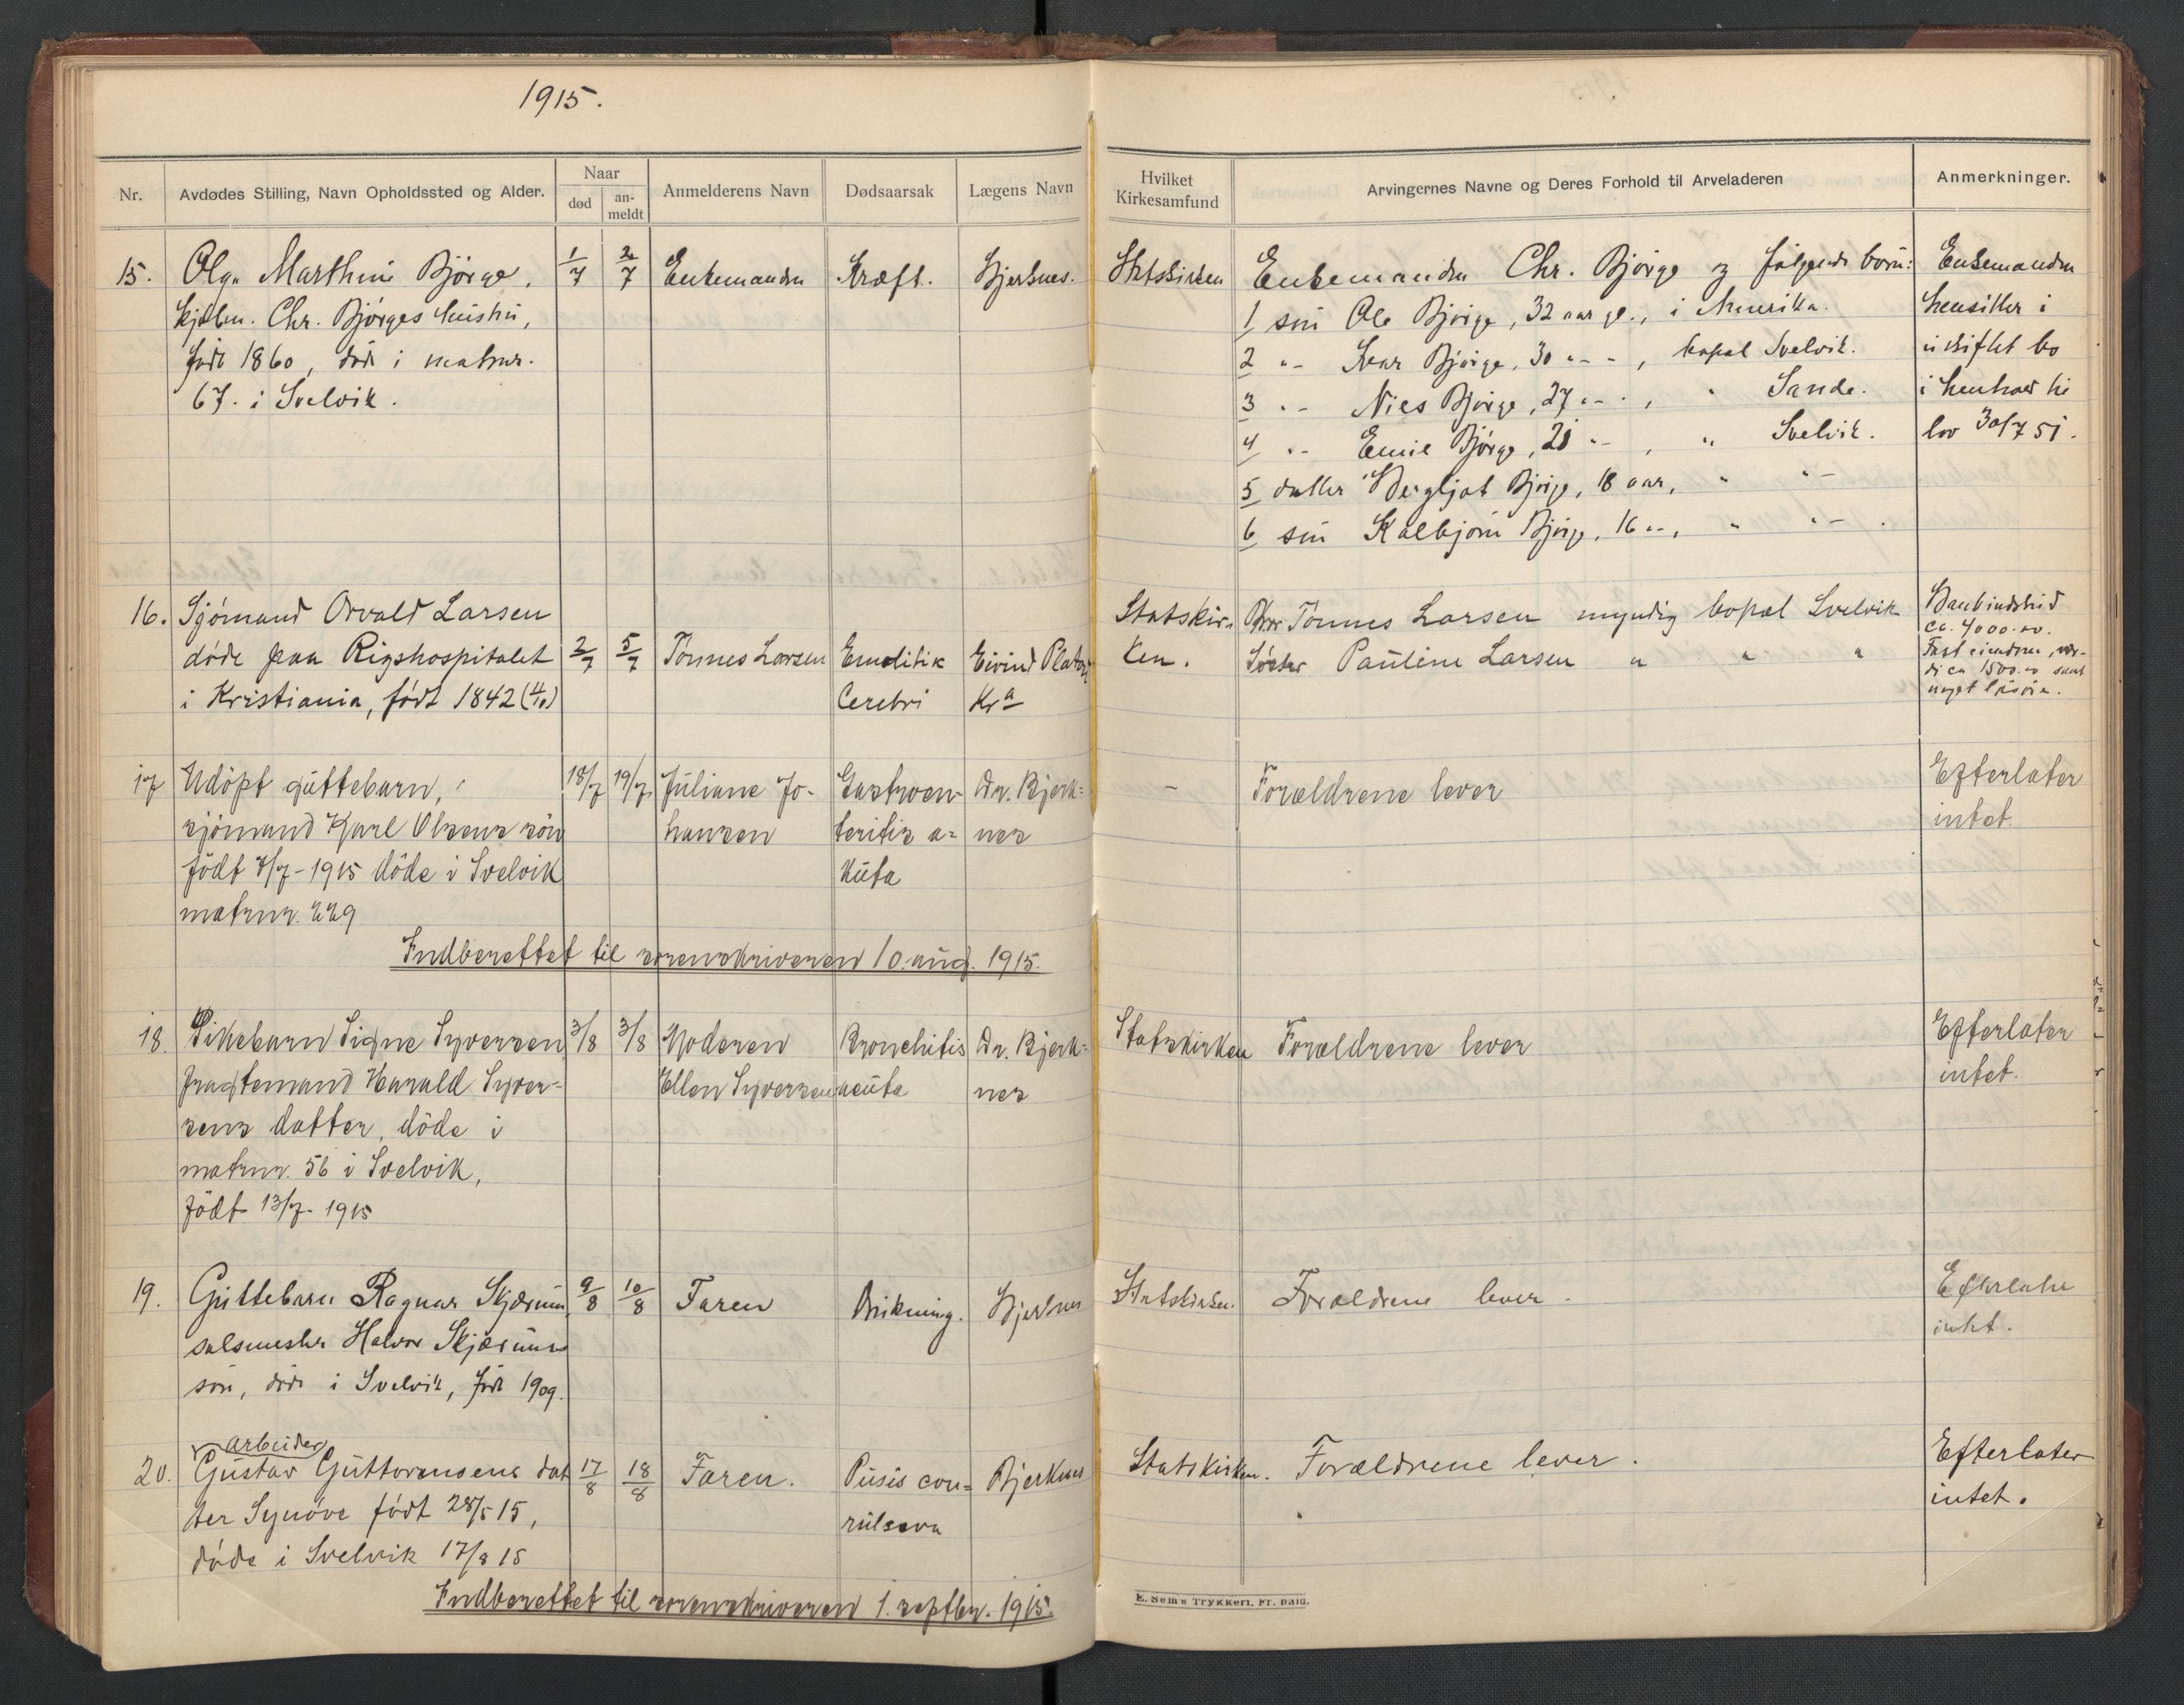 1915.
Nr.
Avdødes Stilling, Navn Opholdssted og Alder.
Naar
død
an-
meldt
Anmelderens Navn
Dødsaarsak
Lægens Navn
Hvilket
Kirkesamfund
Arvingernes Navne og Deres Forhold til Arveladeren
Anmerkninger.
15.
Olga Marthine Bjørge,
Chr. Bjørges hustru,
født 1860, død i matrnr.
67. i Svelvik.
1/7
2/7
Enkemanden
Kræft.
Bjerknes.
Statskirken
Enkemanden Chr. Bjørge og følgende börn:
1 sön Ole Bjørge, 32 aar gl., i Amerika.
2 "- Ivar Bjørge, 30 "- -, bopæl Svelvik.
3 "- Nies Bjørge, 27 "- -, " Sande.
4 "- Emil Bjørge, 21 "- , " Svelvik.
5 datter Bergljot Bjørge, 18 aar, " "-
6 sön Kolbjørn Bjørge, 16 "-, " "- .
Enkemanden
hensitter i
uskiftet bo
i henhold til
lov 30/7 51.
16.
Sjömand Orvald Larsen
døde paa Rigshospitalet
i Kristiania, født 1842 (4/10)
2/7
5/7
Tönnes Larsen
Emolitik
Cerebri
Eivind Platou
Kra
Statskir-
ken.
Bror Tönnes Larsen myndig bopæl Svelvik
Søster Pauline Larsen " " "
Bankindskud
ca. 4000.00.
Fast eiendom, vær-
di ca 1500.00 samt
noget løsöre.
17
Udöpt guttebarn,
sjömand Karl Olsens sön
födt 7/7-1915 döde i Svelvik
matrnr. 229
18/7
19/7
Juliane Jo-
hansen
Gastroen-
teritis a-
kuta
Dr. Bjerk-
nes
-
Forældrene lever
Efterlater
intet.
Indberettet til sorenskriveren 10. aug. 1915.
18.
Pikebarn Signe Syversen
fragtemand Harald Syver-
sens datter, döde i
matrnr. 56 i Svelvik,
födt 13/7-1915
3/8
3/8
Moderen
Ellen Syversen
Bronchitis
acuta
Dr. Bjerk-
nes
Statskirken
Forældrene lever
Efterlater
intet.
19.
Guttebarn Ragnar Skjærum
Halvor Skjærums
sön, död i Svelvik, født 1909.
9/8
10/8
Faren
Drukning.
Bjerknes
Statskirken.
Forældrene lever.
Efterlater
intet.
20.
Arbeider
Gustav Guttormsens dat
ter Synöve født 28/5 15,
døde i Svelvik 17/8 15
17/8
18/8
Faren.
Pusis con-
rulseva
Bjerknes
Statskirken.
Forældrene lever.
Efterlater
intet.
Indberettet til sorenskriveren 1. septbr. 1915.
E. Sem's Trykkeri, Fr. hald.